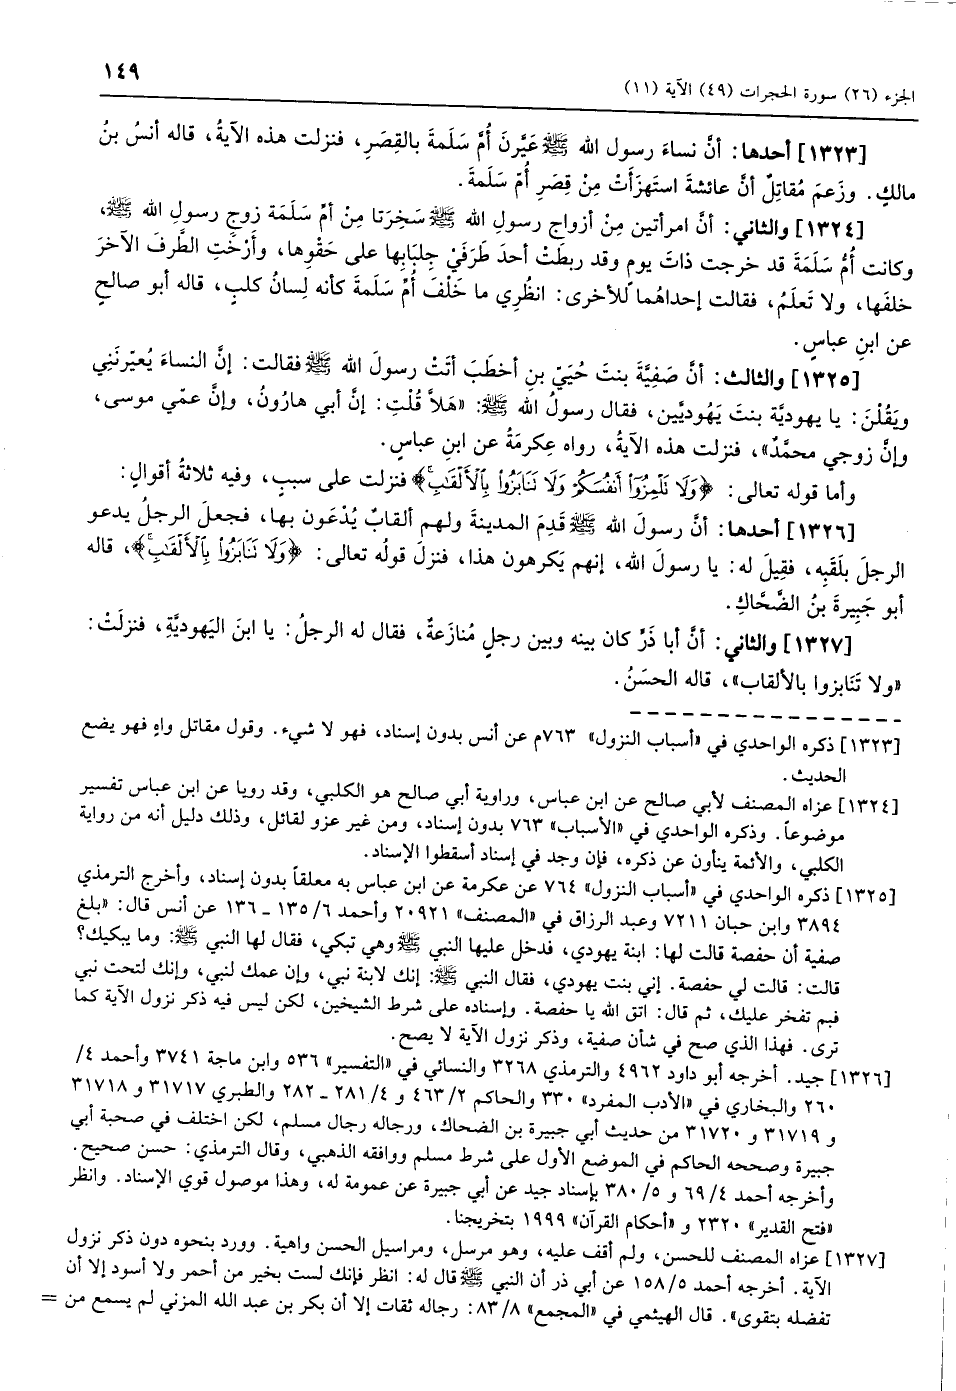 الجزء (٢٦) سورة الحجرات (٤٩) الآية (١١)
١٤٩
[١٣٢٣] أحدها: أنَّ نساءَ رسول الله ﷺ عَيَّرنَ أُمَّ سَلَمةَ بالقِصَرِ، فنزلت هذه الآيةُ، قاله أنسُ بنُ
مالكٍ. وزَعمَ مُقاتِلٌ أنَّ عائشةَ استهزَأتْ مِنْ قِصَرِ أُمِّ سَلَمةَ.
[١٣٢٤] والثاني: أنَّ امرأتين مِنْ أزواجِ رسولِ الله ﷺ سَخِرَتا مِنْ أمِّ سَلَمَةَ زوجِ رسولِ الله ﷺ،
وكانت أُمُّ سَلَمَةَ قد خرجت ذاتَ يومٍ وقد ربطتْ أحدَ طَرَفَيْ جِلبَابِها على حَقْوِها، وأَرْخَتِ الطَّرفَ الآخرَ
خلفَها، ولا تَعلَمُ، فقالت إحداهُما للأخرى: انظُرِي ما خَلْفَ أُمِّ سَلَمةَ كأنه لِسانُ كلبٍ، قاله أبو صالحٍ
عن ابنِ عباسٍ.
[١٣٢٥] والثالث: أنَّ صَفِيَّةَ بنتَ حُيَيِّ بنِ أخطَبَ أتَتْ رسولَ الله ﷺ فقالت: إنَّ النساءَ يُعيّرنَني
ويَقُلْنَ: يا يهوديَّة بنتَ يَهُوديَّين، فقال رسولُ الله ﷺ: «هَلاَّ قُلْتِ: إنَّ أبي هارُونُ، وإنَّ عمّي موسى،
وإنَّ زوجي محمَّدٌ»، فنزلت هذه الآيةُ، رواه عِكرمَةُ عن ابنِ عباسٍ.
وأما قوله تعالى: ﴿وَلَا نَلْمِزُوٓا۟ أَنفُسَكُمْ وَلَا نَنَابَزُوا۟ بِٱلْأَلْقَـٰبِ﴾ فنزلت على سببٍ، وفيه ثلاثةُ أقوالٍ:
[١٣٢٦] أحدها: أنَّ رسولَ الله ﷺ قَدِمَ المدينةَ ولهم ألقابٌ يُدْعَون بها، فجعلَ الرجلُ يدعو
الرجلَ بلَقَبِه، فقِيلَ له: يا رسولَ الله، إنهم يَكرهون هذا، فنزلَ قولُه تعالى: ﴿وَلَا نَنَابَزُوا۟ بِٱلْأَلْقَـٰبِ﴾، قاله
أبو جَبِيرةَ بنُ الضَّحَّاكِ.
[١٣٢٧] والثاني: أنَّ أبا ذَرٍّ كان بينه وبين رجلٍ مُنازَعةٌ، فقال له الرجلُ: يا ابنَ اليَهوديَّةِ، فنزلَتْ:
«ولا تَنَابزوا بالألقاب»، قاله الحسَنُ.
[١٣٢٣] ذكره الواحدي في «أسباب النزول» ٧٦٣م عن أنس بدون إسناد، فهو لا شيء. وقول مقاتل واهٍ فهو يضع
الحديث.
[١٣٢٤] عزاه المصنف لأبي صالح عن ابن عباس، وراوية أبي صالح هو الكلبي، وقد رويا عن ابن عباس تفسير
موضوعاً. وذكره الواحدي في «الأسباب» ٧٦٣ بدون إسناد، ومن غير عزو لقائل، وذلك دليل أنه من رواية
الكلبي، والأئمة ينأون عن ذكره، فإن وجد في إسناد أسقطوا الإسناد.
[١٣٢٥] ذكره الواحدي في «أسباب النزول» ٧٦٤ عن عكرمة عن ابن عباس به معلقاً بدون إسناد، وأخرج الترمذي
٣٨٩٤ وابن حبان ٧٢١١ وعبد الرزاق في «المصنف» ٢٠٩٢١ وأحمد ٦/ ١٣٥ ـ ١٣٦ عن أنس قال: «بلغ
صفية أن حفصة قالت لها: ابنة يهودي، فدخل عليها النبي ﷺ وهي تبكي، فقال لها النبي ﷺ: وما يبكيك؟
قالت: قالت لي حفصة. إني بنت يهودي، فقال النبي ﷺ: إنك لابنة نبي، وإن عمك لنبي، وإنك لتحت نبي
فبم تفخر عليك، ثم قال: اتق الله يا حفصة. وإسناده على شرط الشيخين، لكن ليس فيه ذكر نزول الآية كما
ترى. فهذا الذي صح في شأن صفية، وذكر نزول الآية لا يصح.
[١٣٢٦] جيد. أخرجه أبو داود ٤٩٦٢ والترمذي ٣٢٦٨ والنسائي في «التفسير» ٥٣٦ وابن ماجة ٣٧٤١ وأحمد ٤/
٢٦٠ والبخاري في «الأدب المفرد» ٣٣٠ والحاكم ٢/ ٤٦٣ و ٤/ ٢٨١ ـ ٢٨٢ والطبري ٣١٧١٧ و ٣١٧١٨
و ٣١٧١٩ و ٣١٧٢٠ من حديث أبي جبيرة بن الضحاك، ورجاله رجال مسلم، لكن اختلف في صحبة أبي
جبيرة وصححه الحاكم في الموضع الأول على شرط مسلم ووافقه الذهبي، وقال الترمذي: حسن صحيح.
وأخرجه أحمد ٤/ ٦٩ و ٥/ ٣٨٠ بإسناد جيد عن أبي جبيرة عن عمومة له، وهذا موصول قوي الإسناد. وانظر
«فتح القدير» ٢٣٢٠ و «أحكام القرآن» ١٩٩٩ بتخريجنا.
[١٣٢٧] عزاه المصنف للحسن، ولم أقف عليه، وهو مرسل، ومراسيل الحسن واهية. وورد بنحوه دون ذكر نزول
الآية. أخرجه أحمد ٥/ ١٥٨ عن أبي ذر أن النبي ﷺ قال له: انظر فإنك لست بخير من أحمر ولا أسود إلا أن
تفضله بتقوى». قال الهيثمي في «المجمع» ٨/ ٨٣: رجاله ثقات إلا أن بكر بن عبد الله المزني لم يسمع من =